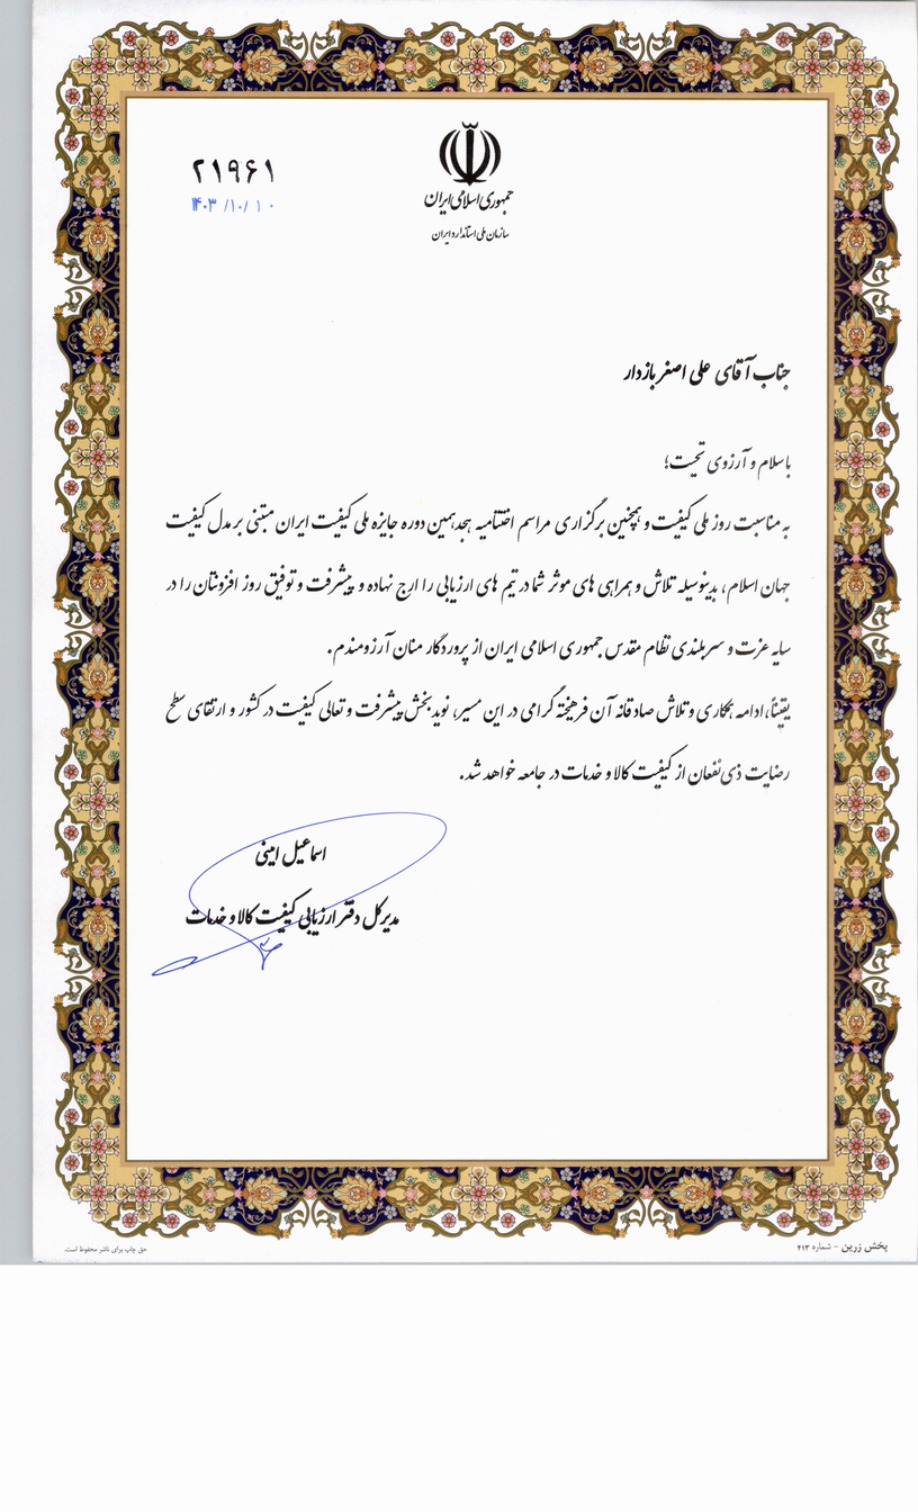 جمهوری اسلامی ایران
سازمان ملی استاندارد ایران
۲۱۹۶۱
۱۴۰۳/۱۰/۱۰
جناب آقای علی اصغر بازدار
با سلام و آرزوی تحیت؛
به مناسبت روز ملی کیفیت و همچنین برگزاری مراسم اختتامیه هجدهمین دوره جایزه ملی کیفیت ایران مبتنی بر مدل کیفیت
جهان اسلام، بدینوسیله تلاش و همراهی های موثر شما در تیم های ارزیابی را ارج نهاده و پیشرفت و توفیق روز افزونتان را در
سایه عزت و سربلندی نظام مقدس جمهوری اسلامی ایران از پروردگار منان آرزومندم.
یقیناً، ادامه همکاری و تلاش صادقانه آن فرهیخته گرامی در این مسیر، نویدبخش پیشرفت و تعالی کیفیت در کشور و ارتقای سطح
رضایت ذی نفعان از کیفیت کالا و خدمات در جامعه خواهد شد.
اسماعیل امینی
مدیرکل دفتر ارزیابی کیفیت کالا و خدمات
پخش زرین - شماره ۲۱۳
حق چاپ برای ناشر محفوظ است.